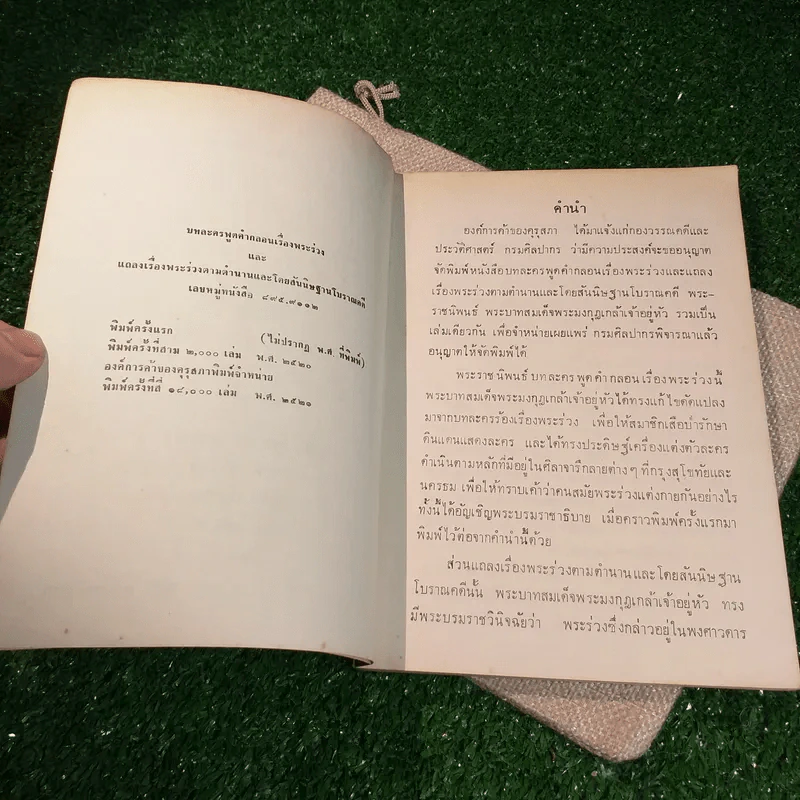 บทละครพูดคำกลอนเรื่องพระร่วง
และ
แถลงเรื่องพระร่วงตามตำนานและโดยสันนิษฐานโบราณคดี
เลขหมู่หนังสือ ๘๙๕.๙๑๑๒
พิมพ์ครั้งแรก (ไม่ปรากฏ พ.ศ. ที่พิมพ์)
พิมพ์ครั้งที่สาม ๒,๐๐๐ เล่ม พ.ศ. ๒๕๒๐
องค์การค้าของคุรุสภาพิมพ์จำหน่าย
พิมพ์ครั้งที่สี่ ๑๔,๐๐๐ เล่ม พ.ศ. ๒๕๒๑
คำนำ
องค์การค้าของคุรุสภา ได้มาแจ้งแก่กองวรรณคดีและ
ประวัติศาสตร์ กรมศิลปากร ว่ามีความประสงค์จะขออนุญาต
จัดพิมพ์หนังสือบทละครพูดคำกลอนเรื่องพระร่วงและแถลง
เรื่องพระร่วงตามตำนานและโดยสันนิษฐานโบราณคดี พระ–
ราชนิพนธ์ พระบาทสมเด็จพระมงกุฎเกล้าเจ้าอยู่หัว รวมเป็น
เล่มเดียวกัน เพื่อจำหน่ายเผยแพร่ กรมศิลปากรพิจารณาแล้ว
อนุญาตให้จัดพิมพ์ได้
พระราชนิพนธ์บทละครพูดคำกลอนเรื่องพระร่วงนี้
พระบาทสมเด็จพระมงกุฎเกล้าเจ้าอยู่หัวได้ทรงแก้ไขดัดแปลง
มาจากบทละครร้องเรื่องพระร่วง เพื่อให้สมาชิกเสือป่ารักษา
ดินแดนแสดงละคร และได้ทรงประดิษฐ์เครื่องแต่งตัวละคร
ดำเนินตามหลักที่มีอยู่ในศิลาจารึกลายต่างๆ ที่กรุงสุโขทัยและ
นครธม เพื่อให้ทราบเค้าว่าคนสมัยพระร่วงแต่งกายกันอย่างไร
ทั้งนี้ได้อัญเชิญพระบรมราชาธิบาย เมื่อคราวพิมพ์ครั้งแรกมา
พิมพ์ไว้ต่อจากคำนำนี้ด้วย
ส่วนแถลงเรื่องพระร่วงตามตำนานและโดยสันนิษฐาน
โบราณคดีนั้น พระบาทสมเด็จพระมงกุฎเกล้าเจ้าอยู่หัว ทรง
มีพระบรมราชวินิจฉัยว่า พระร่วงซึ่งกล่าวอยู่ในพงศาวดาร